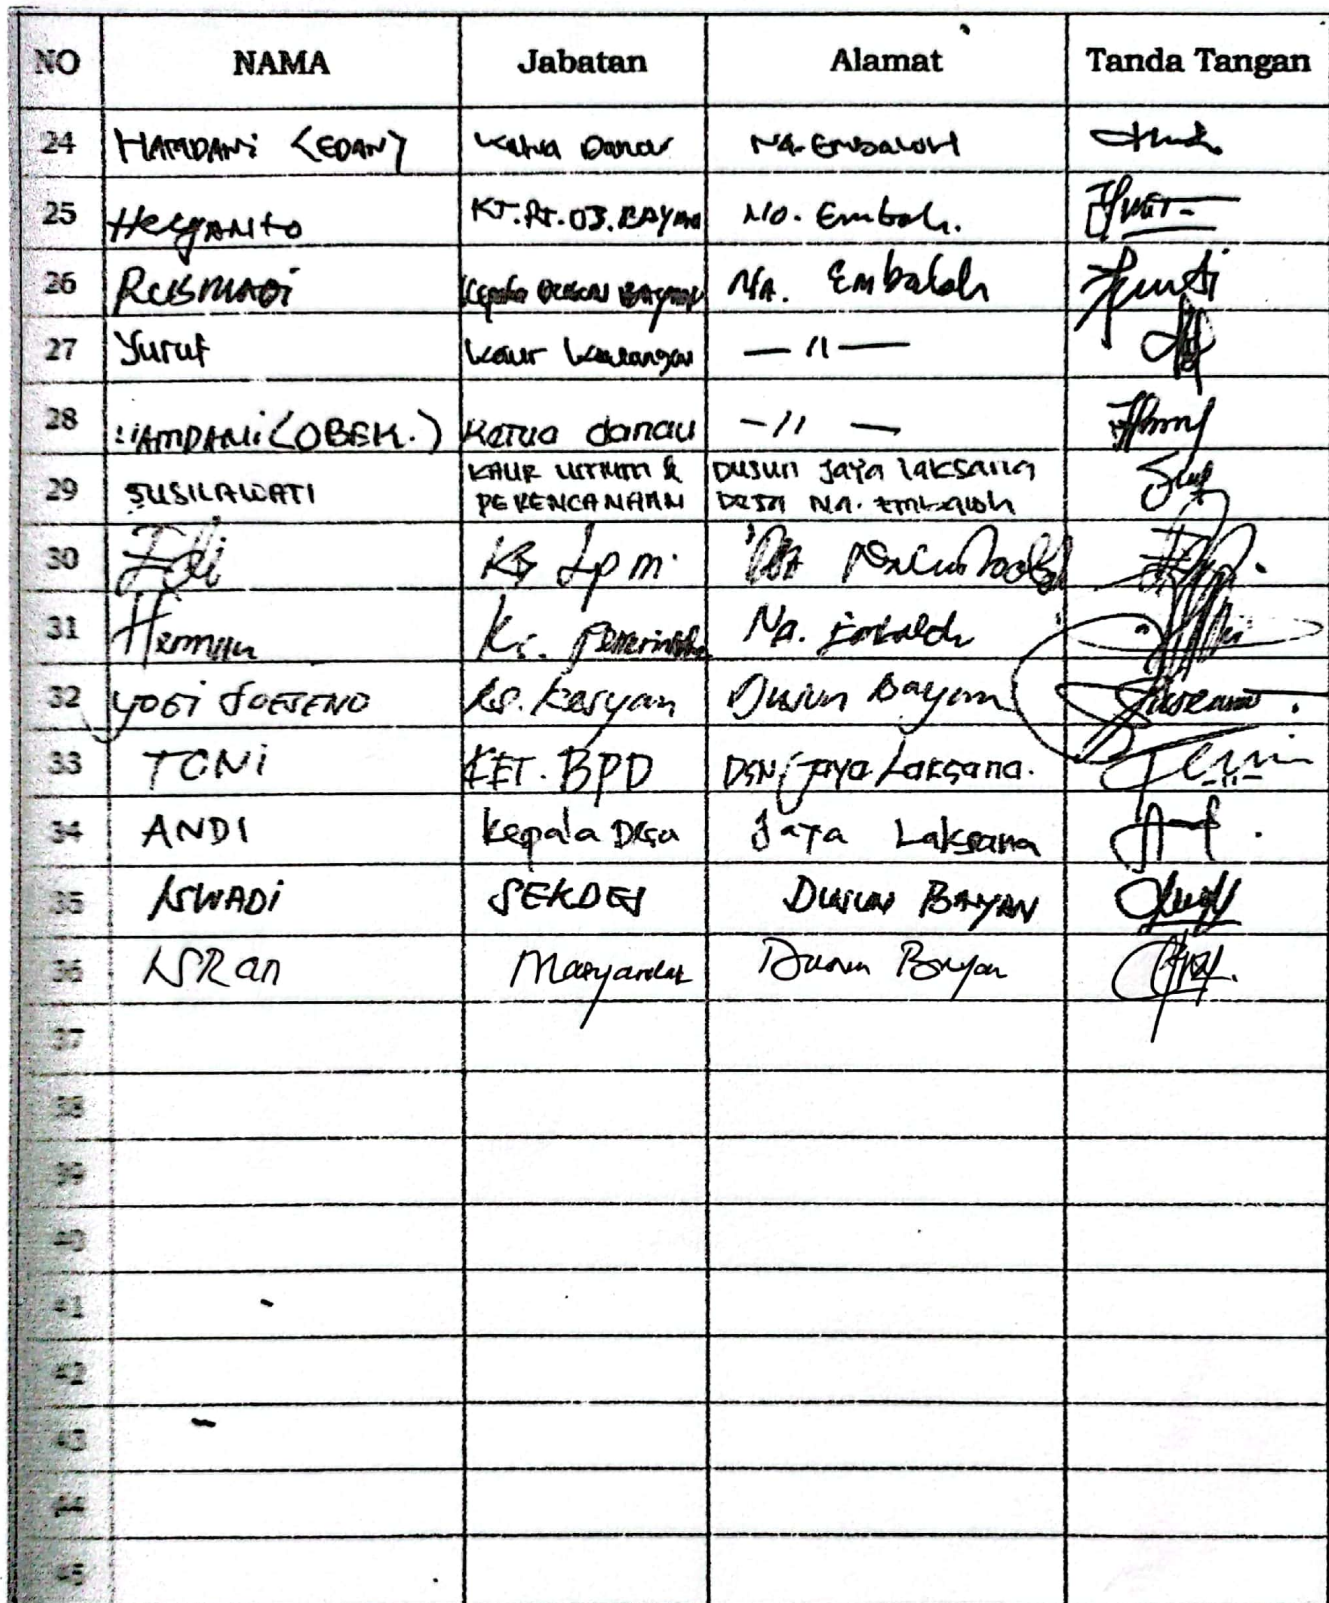 NO NAMA Jabatan Alamat Tanda Tangan
24 HAMDANi (EDAN) Ketua Danau Na. Embaloh
25 Heryanto KT. RT. 03. BAYAN Na. Embaloh.
26 RUSMADi Kepala Dusun Bayan NA. Embaloh
27 Yusuf Kaur Keuangan — 11 —
28 HAMDANi (OBEK.) Ketua danau - 11 —
29 SUSILAWATI KAUR UMUM & PERENCANAAN Dusun Jaya laksana Desa Na. Embaloh
30 Edi Lpm
31 Herman Na. Embaloh
32 YOGI Dusun Bayan
33 TONi KET. BPD DSN Jaya Laksana.
34 ANDI Kepala Desa Jaya Laksana
35 ISWADi SEKDES Dusun BAYAN
36 ISRan Masyarakat Dusun Bayan
37
38
39
40
41
42
43
44
45